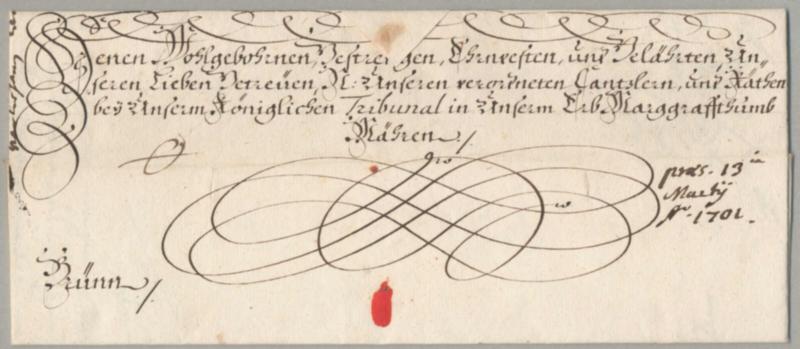 Denen Wohlgebohrnen, Gestrengen, Ehrnvesten, und Gelährten, Un-
seren Lieben Getreüen, N: Unseren verordneten Cantzlern, und Räthen
bey Unserm Königlichen Tribunal in Unserm Erb Marggraffthumb
Mähren
præs. 13
Martij
1701.
Brünn